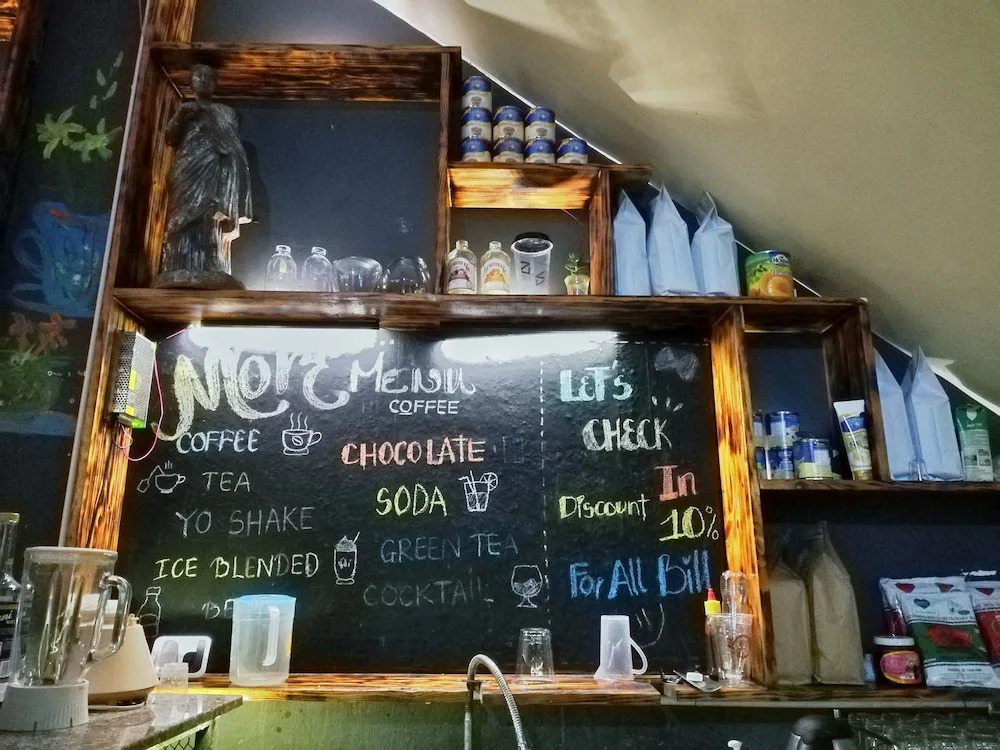 More MENU
COFFEE
COFFEE
TEA
YO SHAKE
ICE BLENDED
CHOCOLATE
SODA
GREEN TEA
COCKTAIL
LET'S
CHECK
In
Discount 10%
For All Bill